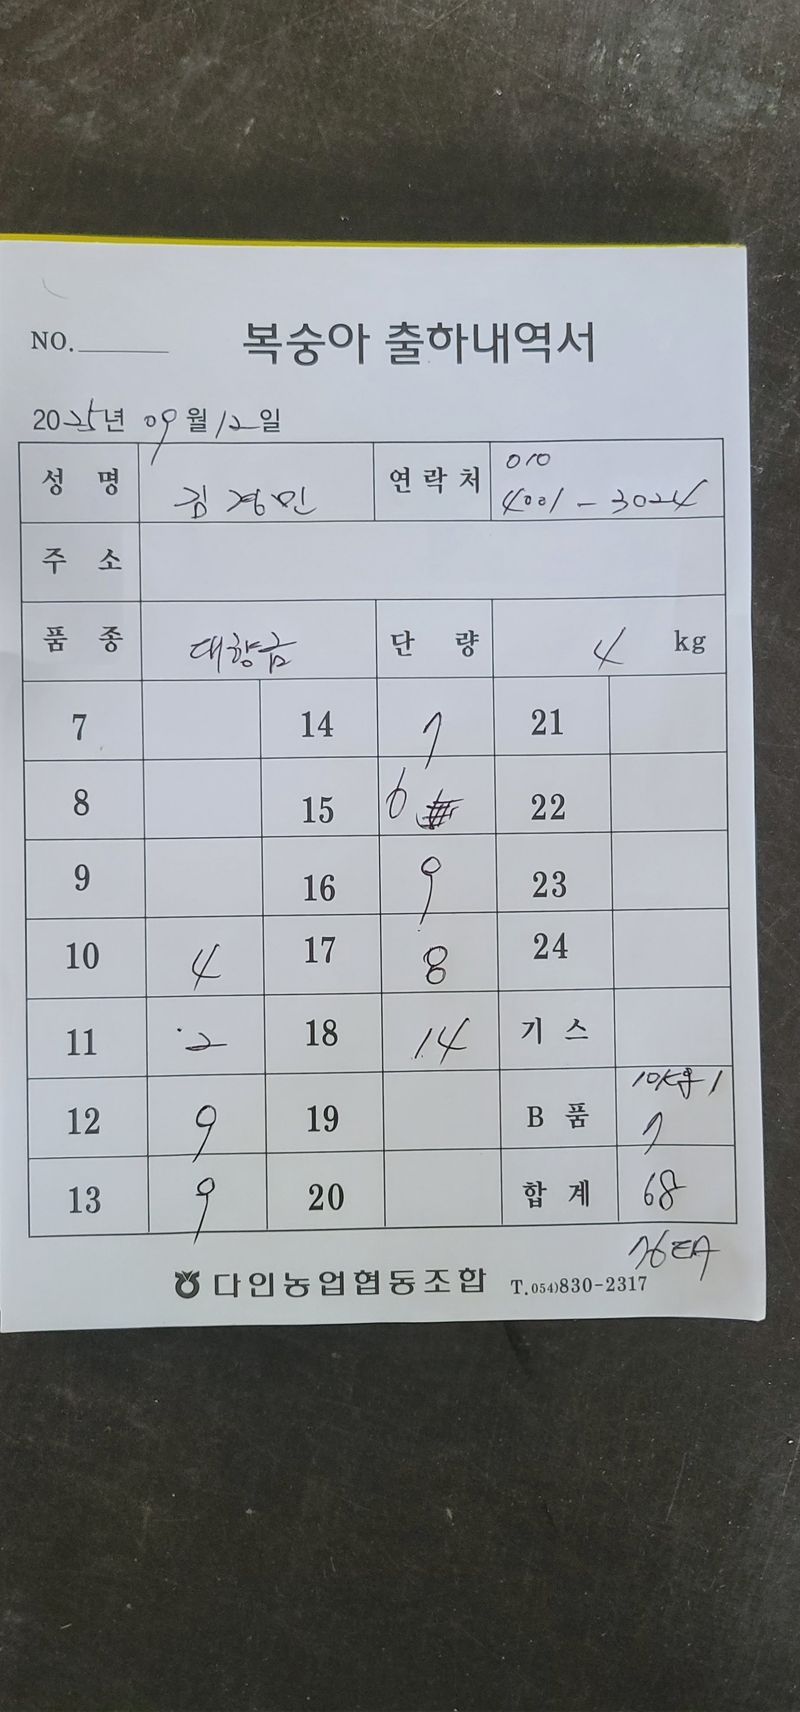 NO.
복숭아 출하내역서
2025년 09월 12일
성 명 김경민 연락처 010 4001-3024
주 소
품 종 대향금 단 량 4 kg
7 14 7 21
8 15 6 22
9 16 9 23
10 4 17 8 24
11 2 18 14 기 스
12 9 19 B 품 10kg 1 7
13 9 20 합 계 68
76EA
다인농업협동조합 T.054)830-2317